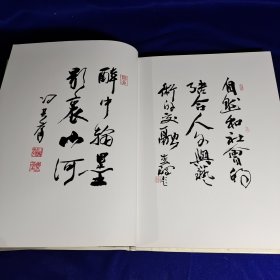 自然和社會的
結合人文與藝
術的交融
醉中翰墨
影裏山河